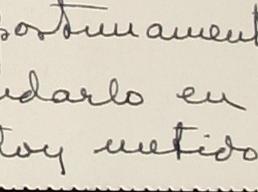 postunament
ndarlo en
toy metido